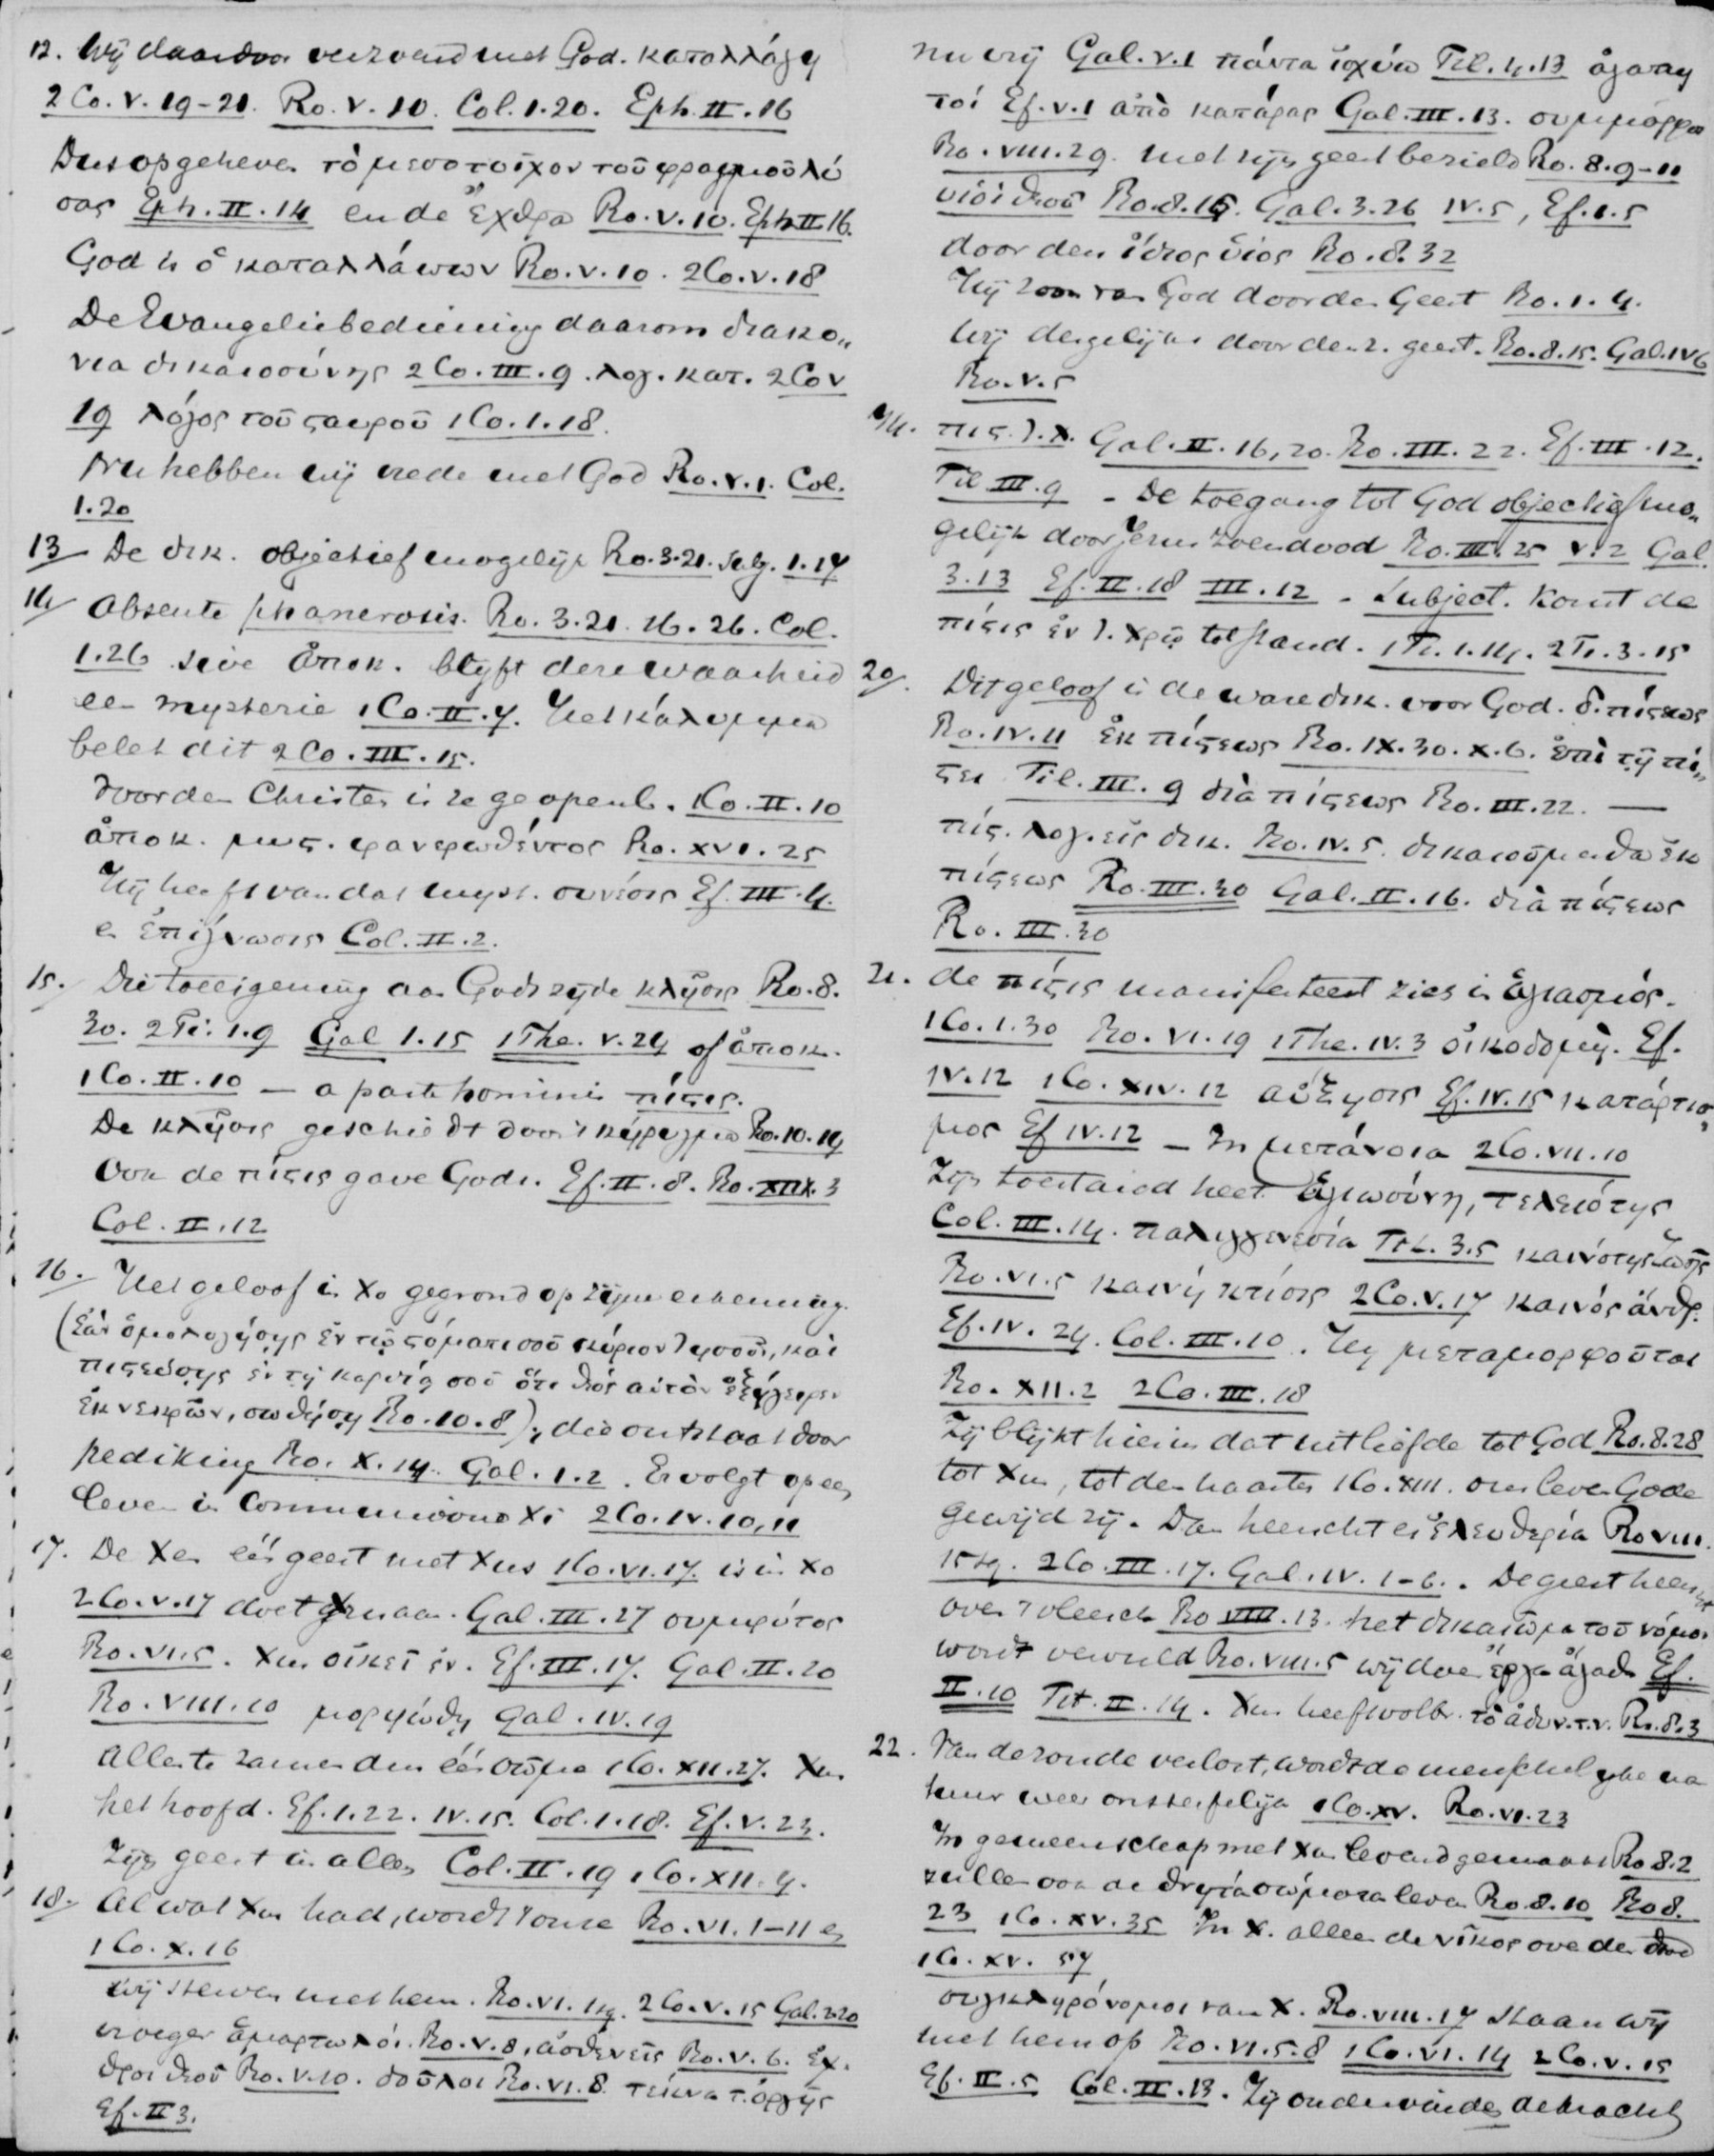 12. Wij daardoor verzoend met God. καταλλάγη
2 Co. V. 19-21. Ro. V. 10. Col. 1.20. Eph. II. 16
Dus opgeheven τὸ μεσοτοιχον τοῦ φραγμοῦ λύ
σας Eph. II. 14 en de ἔχθρα Ro. V. 10. Eph II 16.
God is ὁ καταλλάσσων Ro. V. 10. 2 Co. V. 18
De Evangeliebediening daarom διακο„
νια δικαιοσύνης 2 Co. III. 9. λογ. κατ. 2 Co V
19 λόγος τοῦ ςαυροῦ 1 Co. 1. 18.
Nu hebben wij vrede met God Ro. V. 1. Col.
1.20
13 De δικ. objectief mogelijk Ro. 3.21. 1.17
14/ Absente phanerosis. Ro. 3.21. 16.26. Col.
1.26 sive ἀποκ. blijft deze waarheid
een mysterie 1 Co. II. 7. Het κάλυμμα
belet dit 2 Co. III. 15.
Voor den Christen is ze geopenb. 1 Co. II. 10
ἀποκ. μυς. φανερωθέντος Ro. XVI. 25
Hij heeft van dat myst. συνέσις Ef. III. 4.
en ἐπίγνωσις Col. II. 2.
15. Die toeeigening van Gods zijde κλῆσις Ro. 8.
30. 2 Ti. 1.9 Gal 1.15 1 The. V. 24 of ἀποκ.
1 Co. II. 10 — a parte hominis πίςις.
De κλῆσις geschiedt door 't κήρυγμα Ro. 10.14
Ook de πίςις gave Gods. Ef. II. 8. Ro. XIIX. 3
Col. II. 12
16. Het geloof in Xo gegrond op zijne erkenning.
(Ἐὰν ὁμολογήσῃς ἐν τῷ ςόματι σοῦ κύριον Ἰησοῦν, καὶ
πιςεύσῃς ἐν τῇ καρδίᾳ σοῦ ὅτι θεός αὐτὸν ἐξήγειρεν
ἐκ νεκρῶν, σωθήσῃ Ro. 10. 8), die ontstaat door
prediking Ro. X. 14. Gal. 1.2. Er volgt op een
leven in Communione Xi 2 Co. IV. 10, 11
17. De Xen één geest met Xus 1 Co. VI. 17. is in Xo
2 Co. V. 17 doet Xm aan. Gal. III. 27 συμφύτος
Ro. VI. 5. Xus οἰκεῖ ἐν. Ef. III. 17. Gal. II. 20
Ro. VIII. 10 μορφώθῃ Gal. IV. 19
Allen te zamen één σῶμα 1 Co. XII. 27. Xus
het hoofd. Ef. 1.22. IV. 15. Col. 1.18. Ef. V. 23.
Zijn geest in allen Col. II. 19 1 Co. XII. 4.
18. Al wat Xus had, wordt 't onze Ro. VI. 1-11 en
1 Co. X. 16
Wij sterven met hem. Ro. VI. 1 sq. 2 Co. V. 15 Gal. 2.20
vroeger ἁμαρτωλόι Ro. V. 8, ἀσθενεῖς Ro. V. 6. ἐχ„
θροι θεοῦ Ro. V. 10. δοῦλοι Ro. VI. 8. τέκνα τ. ὀργῆς
Ef. II 3.
nu vrij Gal. V. 1 πάντα ἰσχύω Fil. 4.13 ἀγαπη
τοί Ef. V. 1 ἀπὸ κατάρας Gal. III. 13. συμμόρφοι
Ro. VIII. 29. met zijn geest bezield Ro. 8.9-11
υἱοὶ θεοῦ Ro. 8.15. Gal. 3.26 IV. 5, Ef. 1.5
door den ἴδιος υἱος Ro. 8.32
Hij Zoon van God door den Geest Ro. 1. 4.
Wij dergelijken door den z. geest. Ro. 8.15. Gal. IV 6
Ro. V. 5
πις. Ἰ. Χ. Gal. II. 16, 20. Ro. III. 22. Ef. III. 12.
Fil. III. 9 - De toegang tot God objectief mo„
gelijk door Jezus zoendood Ro. III. 25 V. 2 Gal.
3.13 Ef. II. 18 III. 12 - Subject. komt de
πίςις ἐν Ἰ. Χρῷ tot stand. 1 Ti. 1.14. 2 Ti. 3.15
20/. Dit geloof is de ware δικ. voor God. δ. πίςεως
Ro. IV. 11 ἐκ πίςεως Ro. IX. 30. X. 6. ἐπὶ τῇ πί„
ςει Fil. III. 9 διὰ πίςεως Ro. III. 22. —
πίς. λογ. εἰς δικ. Ro. IV. 5. δικαιούμεθα ἐκ
πίςεως Ro. III. 30 Gal. II. 16. διὰ πίςεως
Ro. III. 30
21. de πίςις manifesteert zich in ἁγιασμός.
1 Co. 1.30 Ro. VI. 19 1 The. IV. 3 οἰκοδομὴ. Ef.
IV. 12 1 Co. XIV. 12 αὔξησις Ef. IV. 15 κατάρτισ„
μος Ef IV. 12 — In μετάνοια 2 Co. VII. 10
Zijn toestand heet ἁγιωσύνη, τελειότης
Col. III. 14. παλιγγενεσία Tit. 3.5 καινότης ζωῆς
Ro. VI. 5 καινή κτίσις 2 Co. V. 17 καινός ἄνθρ.
Ef. IV. 24. Col. III. 10. Hij μεταμορφοῦται
Ro. XII. 2 2 Co. III. 18
Zij blijkt hierin dat uit liefde tot God Ro. 8.28
tot Xus, tot den naasten 1 Co. XIII. ons leven Gode
gewijd zij. Dan heerscht er ἐλευθερία Ro VIII.
15 sq. 2 Co. III. 17. Gal. IV. 1-6. De geest heerscht
over 't vleesch Ro VIII. 13. het δικαίωμα τοῦ νόμου
wordt vervuld Ro. VIII. 5 wij doen ἔργα ἀγαθ. Ef.
II. 10 Tit. II. 14. Xus heeft volbr. τὸ ἀδυν. τ. ν. Ro. 8.3
22. Van de zonde verlost, wordt de mensch
weer onsterfelijk 1 Co. XV. Ro. VI. 23
In gemeenschap met Xus levend gemaakt Ro 8.2
zullen ook de θνητὰ σώματα leven Ro. 8.10 Ro 8.
23 1 Co. XV. 35 In X. alleen de νῖκος over den dood
1 Co. XV. 57
συγκληρόνομοι van X. Ro. VIII. 17 staan wij
met hem op Ro. VI. 5.8 1 Co. VI. 14 2 Co. V. 15
Ef. II. 5 Col. II. 13. Zij ondervinden de kracht